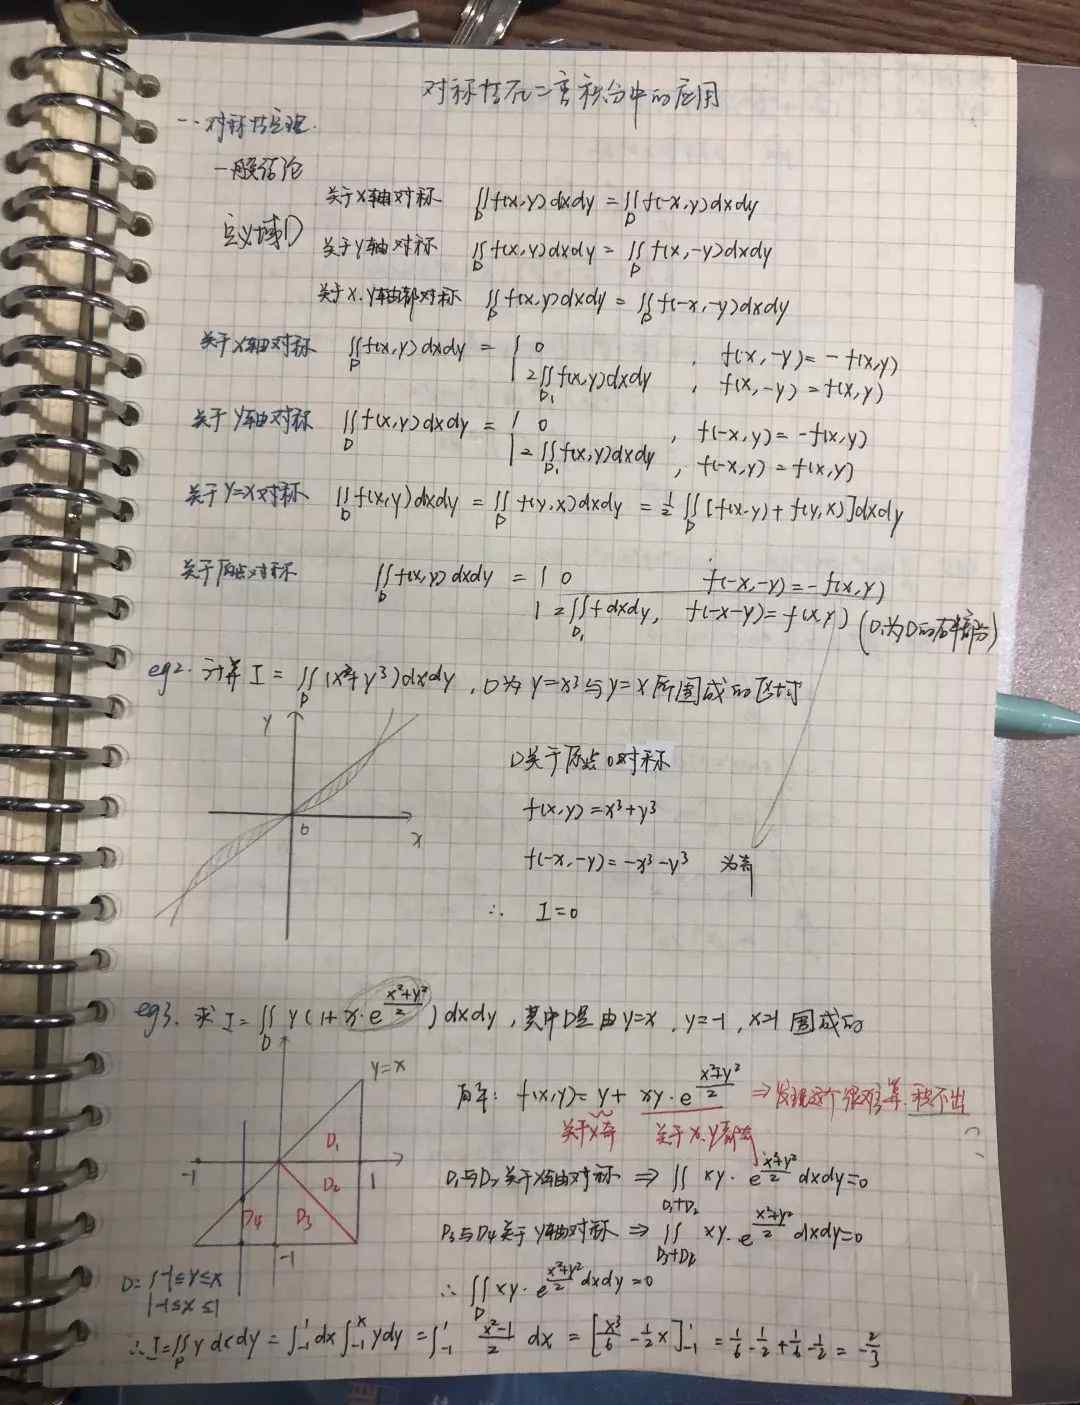 对称性在二重积分中的应用
一.对称性定理.
一般结论
关于X轴对称 ∬_D f(x,y)dxdy = ∬_D f(-x,y)dxdy
定义域D
关于Y轴对称 ∬_D f(x,y)dxdy = ∬_D f(x,-y)dxdy
关于X.Y轴都对称 ∬_D f(x,y)dxdy = ∬_D f(-x,-y)dxdy
关于X轴对称 ∬_D f(x,y)dxdy = { 0 , f(x,-y)=-f(x,y)
2∬_{D₁} f(x,y)dxdy , f(x,-y)=f(x,y)
关于Y轴对称 ∬_D f(x,y)dxdy = { 0 , f(-x,y)=-f(x,y)
2∬_{D₁} f(x,y)dxdy , f(-x,y)=f(x,y)
关于Y=X对称 ∬_D f(x,y)dxdy = ∬_D f(y,x)dxdy = ½∬_D [f(x,y)+f(y,x)]dxdy
关于原点对称 ∬_D f(x,y)dxdy = { 0 f(-x,-y)=-f(x,y)
2∬_{D₁} f dxdy, f(-x-y)=f(x,y) (D₁为D的右半部分)
eg2. 计算 I = ∬_D (x³+y³)dxdy , D为 y=x³ 与 y=x 所围成的区域
y
D关于原点O对称
f(x,y)=x³+y³
0
x
f(-x,-y)=-x³-y³ 为奇
∴ I=0
eg3. 求 I=∬_D y(1+x·e^{(x²+y²)/2})dxdy , 其中D是由y=x , y=-1 , x=1 围成的
y=x
解: f(x,y)= y + xy·e^{(x²+y²)/2} ⇒发现这个很难算.积不出
关于y奇 关于x.y都奇
D₁
-1
D₂
1
D₁与D₂关于X轴对称 ⇒ ∬_{D₁+D₂} xy·e^{(x²+y²)/2}dxdy=0
D₄ D₃
D₃与D₄关于Y轴对称 ⇒ ∬_{D₃+D₄} xy·e^{(x²+y²)/2}dxdy=0
-1
D={ -1≤y≤x
-1≤x≤1
∴ ∬_D xy·e^{(x²+y²)/2}dxdy=0
∴ I=∬_D y dxdy = ∫_{-1}^{1}dx∫_{-1}^{x}ydy = ∫_{-1}^{1} (x²-1)/2 dx = [x³/6 - ½x]_{-1}^{1} = 1/6 - 1/2 + 1/6 - 1/2 = -2/3